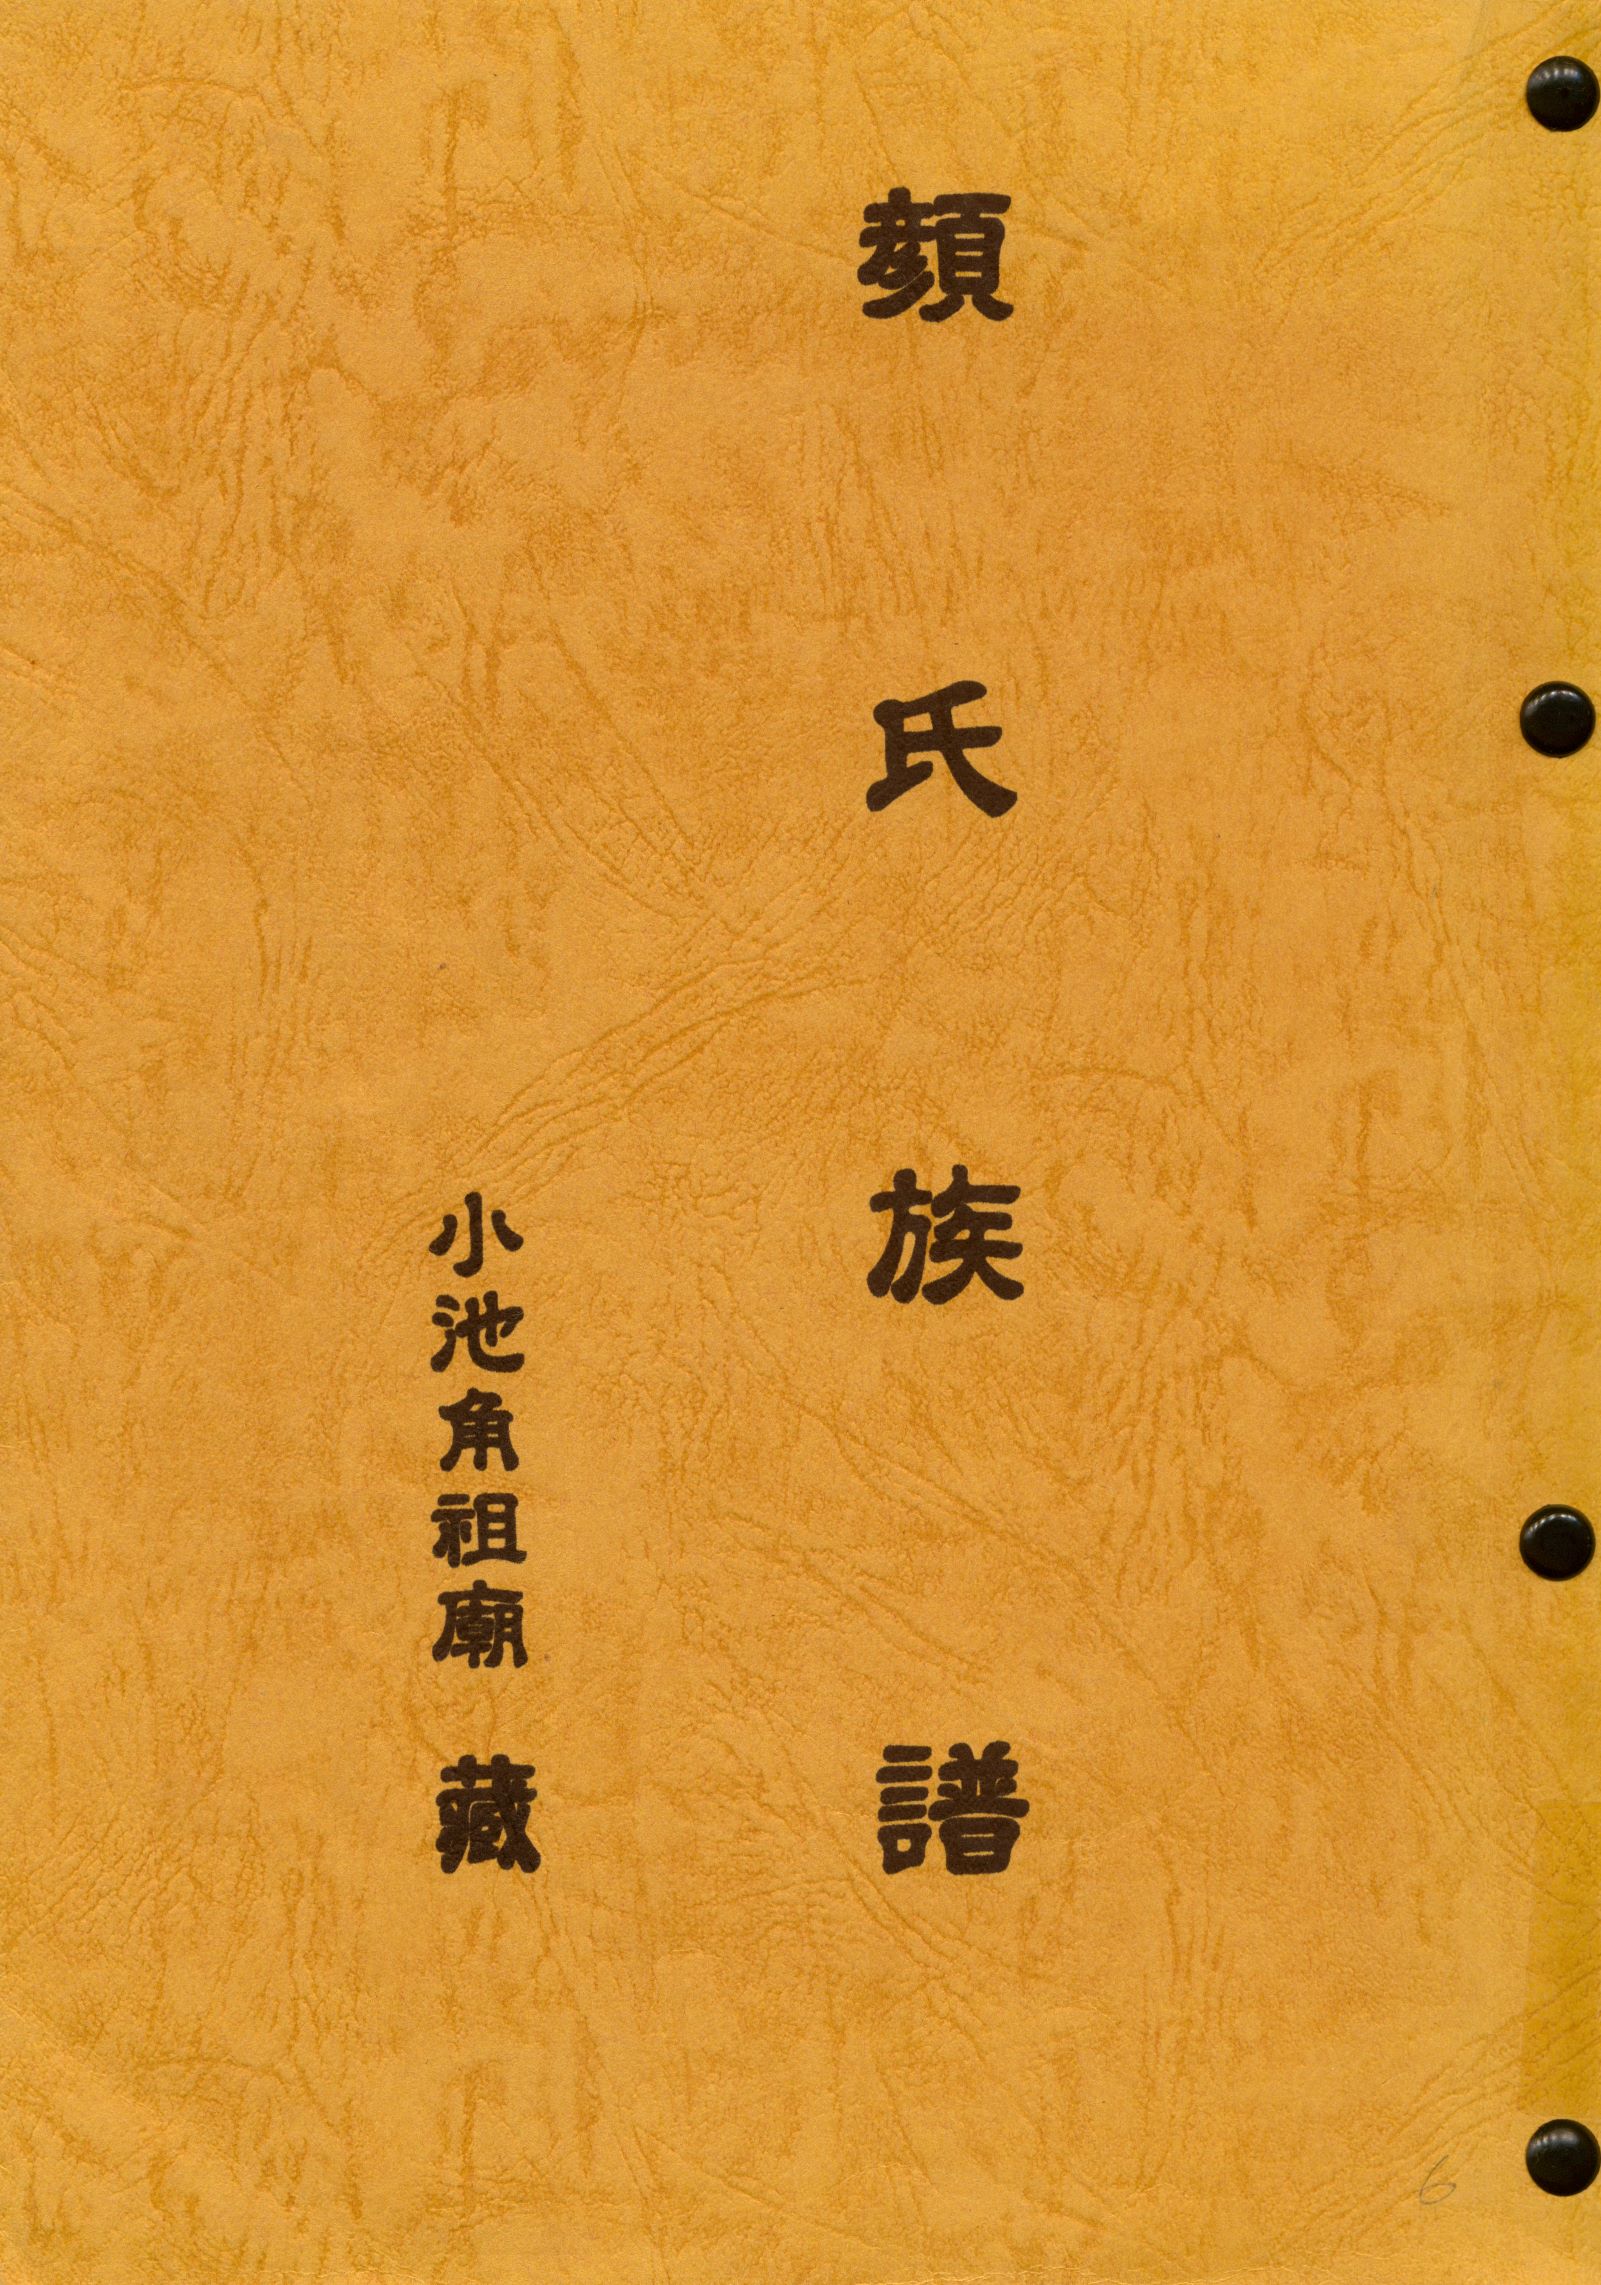 顏氏族譜
小池角祖廟 藏
6